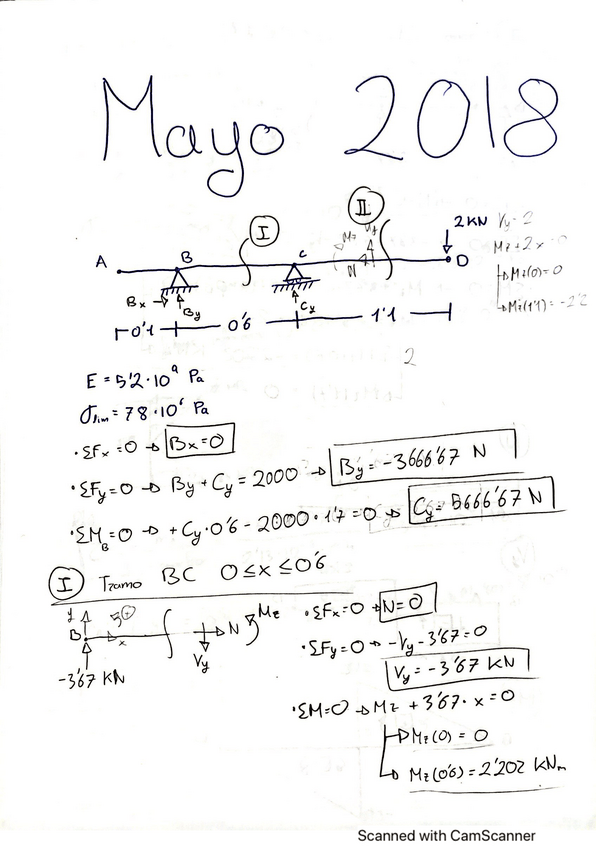 Mayo 2018
I
II
2 KN
A
B
C
D
Mz
Vy
N
Vy = 2
Mz + 2x = 0
Mz(0) = 0
Mz(1'1) = -2'2
Bx
By
Cy
0'1
0'6
1'1
2
E = 5'2·10⁹ Pa
σlim = 78·10⁶ Pa
·ΣFx = 0 → Bx = 0
·ΣFy = 0 → By + Cy = 2000 → By = -3666'67 N
·ΣM_B = 0 → + Cy·0'6 - 2000·1'7 = 0 → Cy = 5666'67 N
I Tramo BC 0 ≤ x ≤ 0'6
y
B
x
+
N
Mz
Vy
-3'67 KN
·ΣFx = 0 → N = 0
·ΣFy = 0 → -Vy - 3'67 = 0
Vy = -3'67 KN
·ΣM = 0 → Mz + 3'67·x = 0
Mz(0) = 0
Mz(0'6) = 2'202 KNm
Scanned with CamScanner